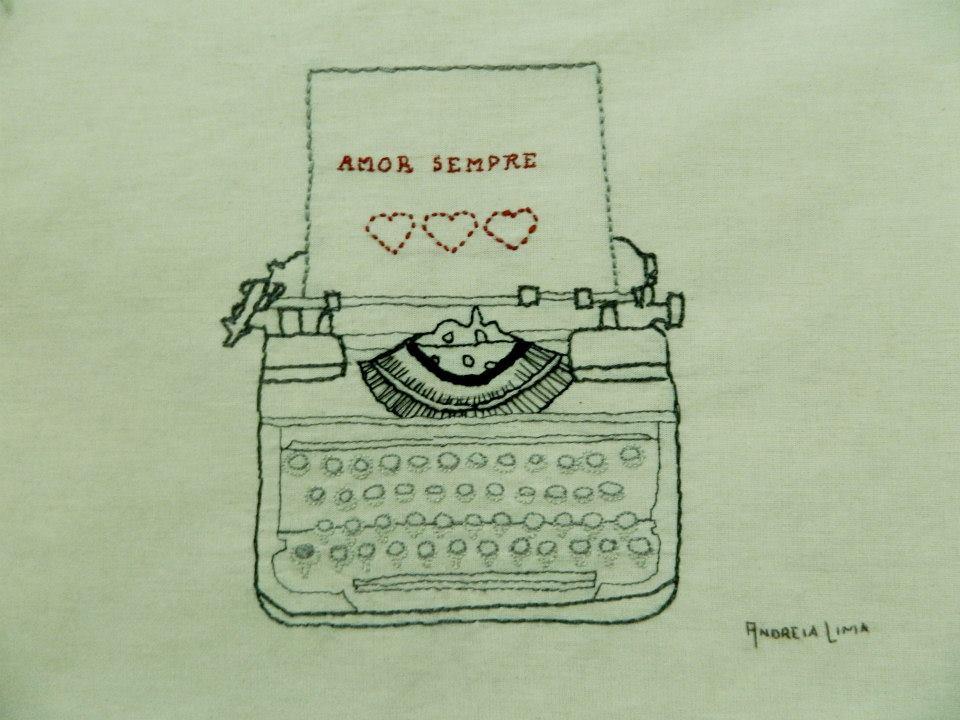 AMOR SEMPRE
ANDREIA LIMA